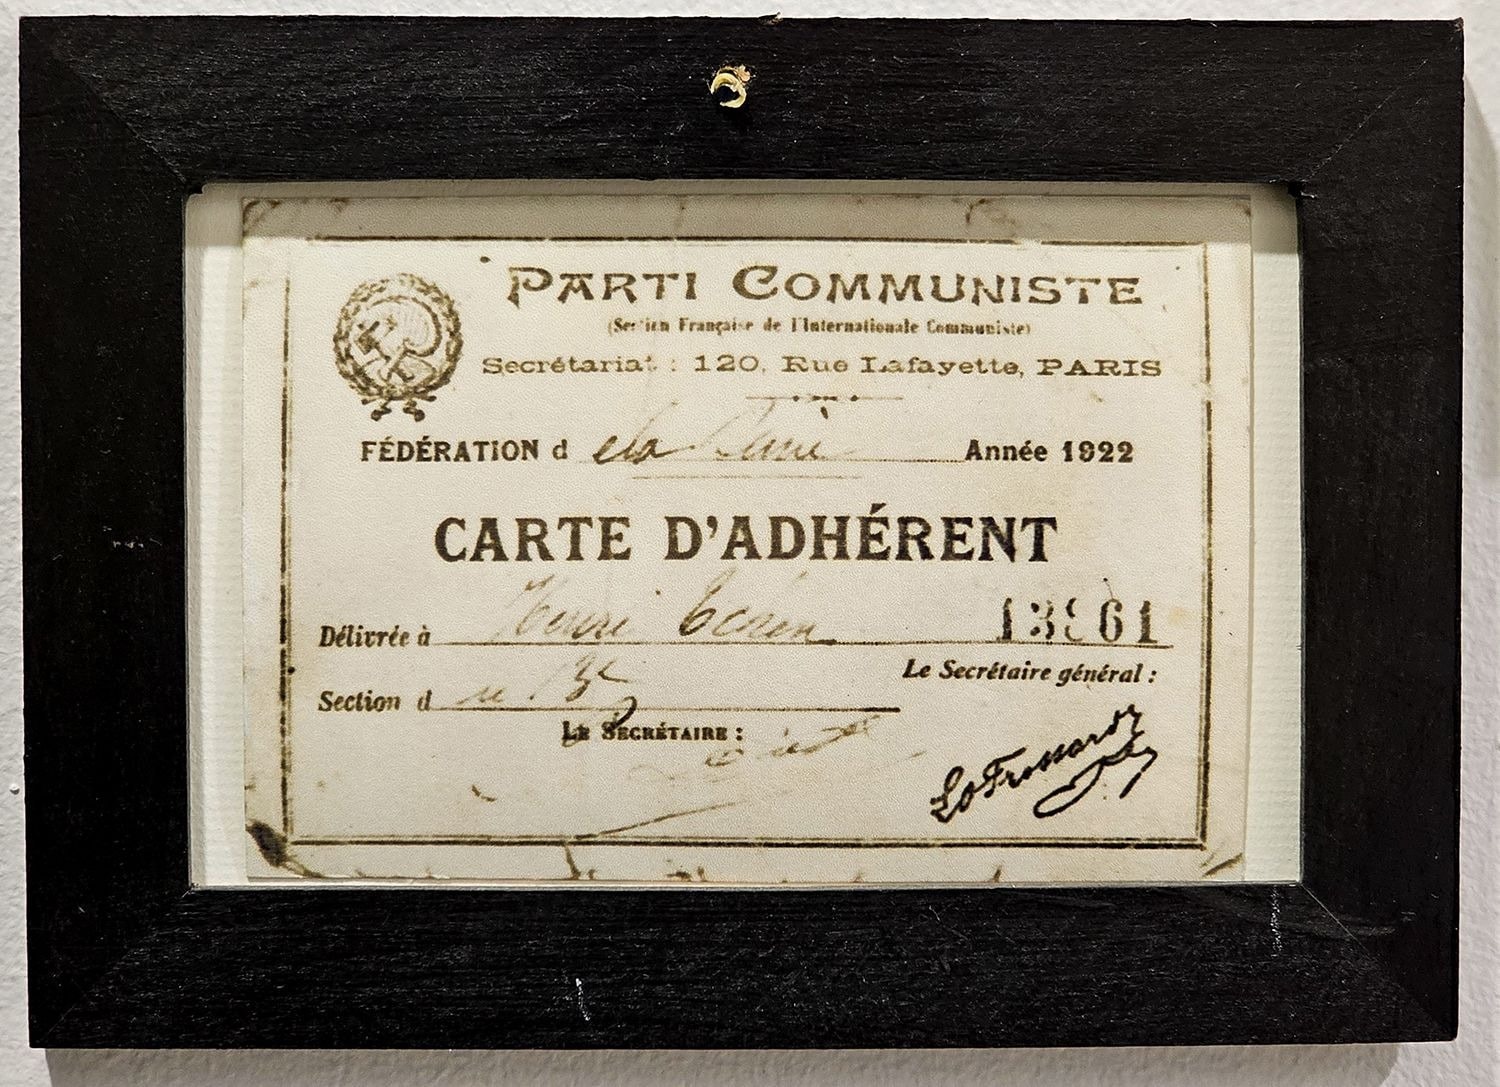 PARTI COMMUNISTE
(Section Française de l'Internationale Communiste)
Secrétariat : 120, Rue Lafayette, PARIS
FÉDÉRATION d e la Seine Année 1922
CARTE D'ADHÉRENT
Délivrée à Henri 13961
Le Secrétaire général :
Section d u 13e
LE SECRÉTAIRE :
LO Frossard